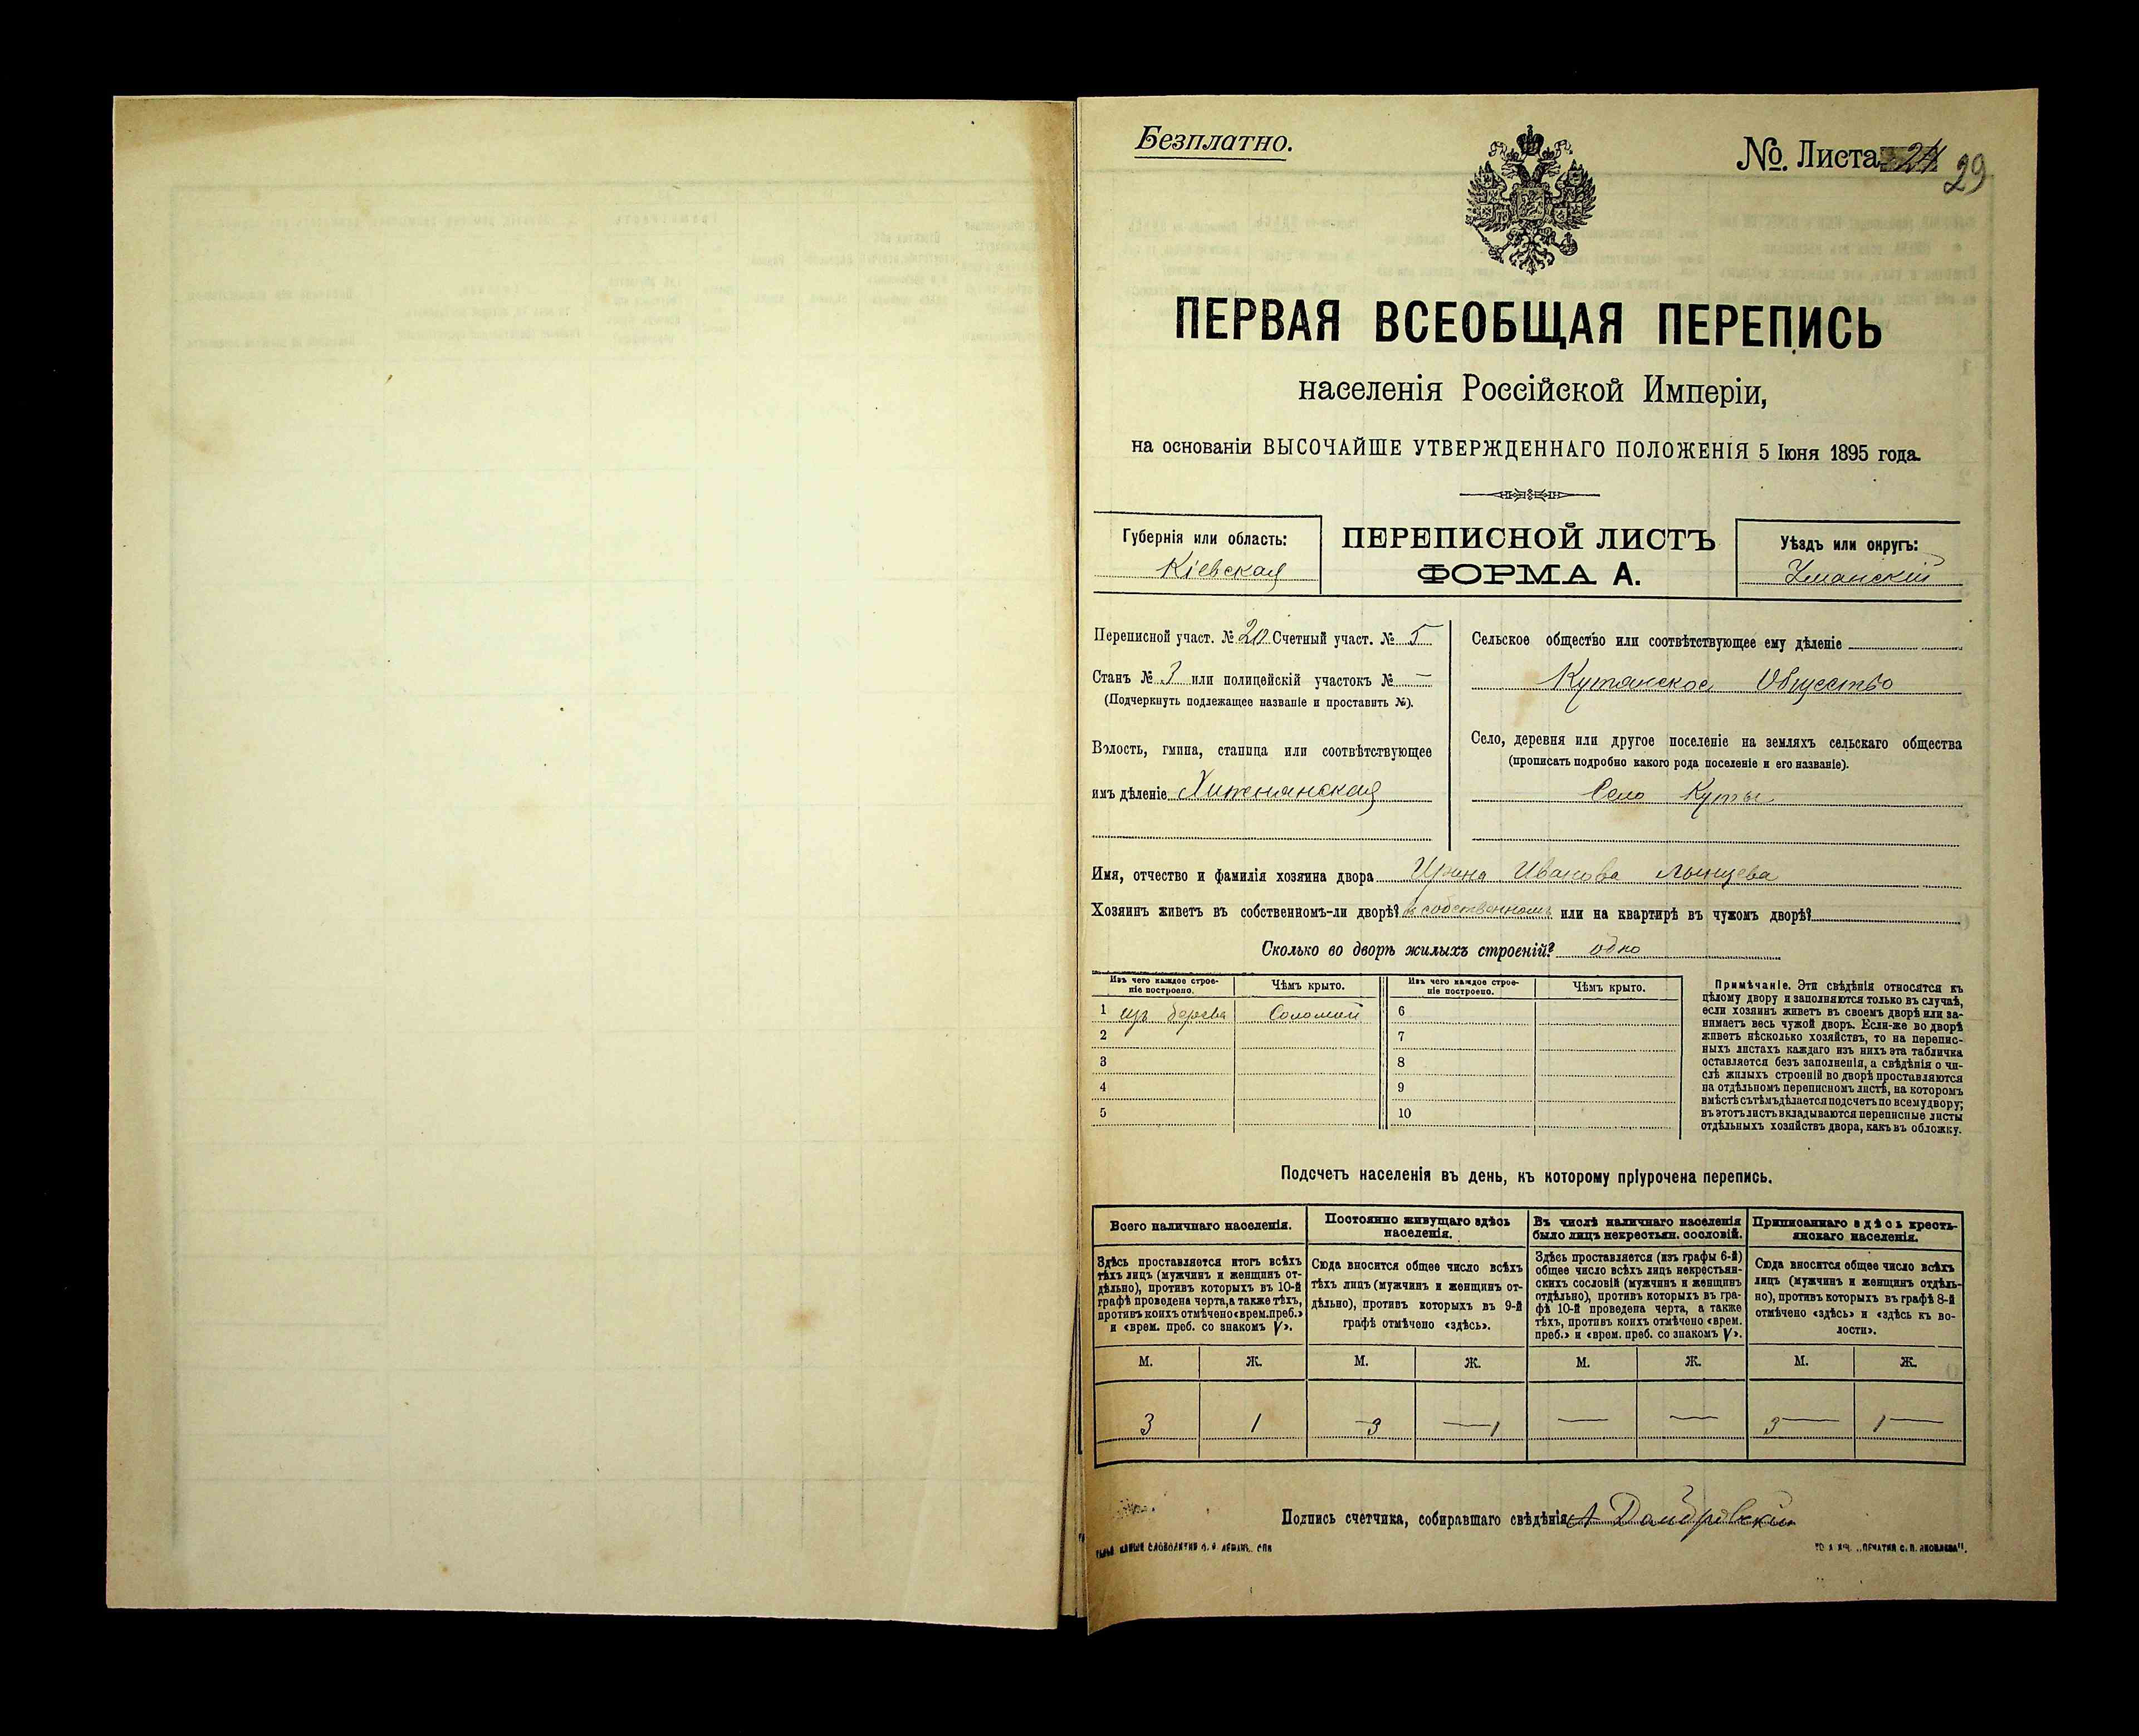 Безплатно.
№. Листа 24 29
ПЕРВАЯ ВСЕОБЩАЯ ПЕРЕПИСЬ
населенія Россійской Имперіи,
на основаніи ВЫСОЧАЙШЕ УТВЕРЖДЕННАГО ПОЛОЖЕНІЯ 5 Іюня 1895 года.
Губернія или область:
Кіевская
ПЕРЕПИСНОЙ ЛИСТЪ
ФОРМА А.
Уѣздъ или округъ:
Уманскій
Переписной участ. № 20 Счетный участ. № 5
Станъ № 3 или полицейскій участокъ № —
(Подчеркнуть подлежащее названіе и проставить №).
Волость, гмина, станица или соотвѣтствующее
имъ дѣленіе Хиженянская
Сельское общество или соотвѣтствующее ему дѣленіе
Кутянское Общество
Село, деревня или другое поселеніе на земляхъ сельскаго общества
(прописать подробно какого рода поселеніе и его названіе).
Село Куты
Имя, отчество и фамилія хозяина двора Ирина Иванова
Хозяинъ живетъ въ собственномъ-ли дворѣ? в собственномъ или на квартирѣ въ чужомъ дворѣ?
Сколько во дворѣ жилыхъ строеній? одно
Изъ чего каждое строе-
ніе построено.
Чѣмъ крыто.
Изъ чего каждое строе-
ніе построено.
Чѣмъ крыто.
1 изъ дерева Соломой 6
2 7
3 8
4 9
5 10
Примѣчаніе. Эти свѣдѣнія относятся къ
цѣлому двору и заполняются только въ случаѣ,
если хозяинъ живетъ въ своемъ дворѣ или за-
нимаетъ весь чужой дворъ. Если-же во дворѣ
живетъ нѣсколько хозяйствъ, то на перепис-
ныхъ листахъ каждаго изъ нихъ эта табличка
оставляется безъ заполненія, а свѣдѣнія о чи-
слѣ жилыхъ строеній во дворѣ проставляются
на отдѣльномъ переписномъ листѣ, на которомъ
вмѣстѣ съ тѣмъ дѣлается подсчетъ по всему двору;
въ этотъ листъ вкладываются переписные листы
отдѣльныхъ хозяйствъ двора, какъ въ обложку.
Подсчетъ населенія въ день, къ которому пріурочена перепись.
Всего наличнаго населенія.
Здѣсь проставляется итогъ всѣхъ
тѣхъ лицъ (мужчинъ и женщинъ от-
дѣльно), противъ которыхъ въ 10-й
графѣ проведена черта, а также тѣхъ,
противъ коихъ отмѣчено «врем. преб.»
и «врем. преб. со знакомъ V».
Постоянно живущаго здѣсь
населенія.
Сюда вносится общее число всѣхъ
тѣхъ лицъ (мужчинъ и женщинъ от-
дѣльно), противъ которыхъ въ 9-й
графѣ отмѣчено «здѣсь».
Въ числѣ наличнаго населенія
было лицъ некрестьян. сословій.
Здѣсь проставляется (изъ графы 6-й)
общее число всѣхъ лицъ некрестьян-
скихъ сословій (мужчинъ и женщинъ
отдѣльно), противъ которыхъ въ гра-
фѣ 10-й проведена черта, а также
тѣхъ, противъ коихъ отмѣчено «врем.
преб.» и «врем. преб. со знакомъ V».
Приписаннаго здѣсь кресть-
янскаго населенія.
Сюда вносится общее число всѣхъ
лицъ (мужчинъ и женщинъ отдѣль-
но), противъ которыхъ въ графѣ 8-й
отмѣчено «здѣсь» и «здѣсь къ во-
лости».
М. Ж. М. Ж. М. Ж. М. Ж.
3 1 3 — 1 — — 3 — 1 —
Подпись счетчика, собиравшаго свѣдѣнія А Домбровскій